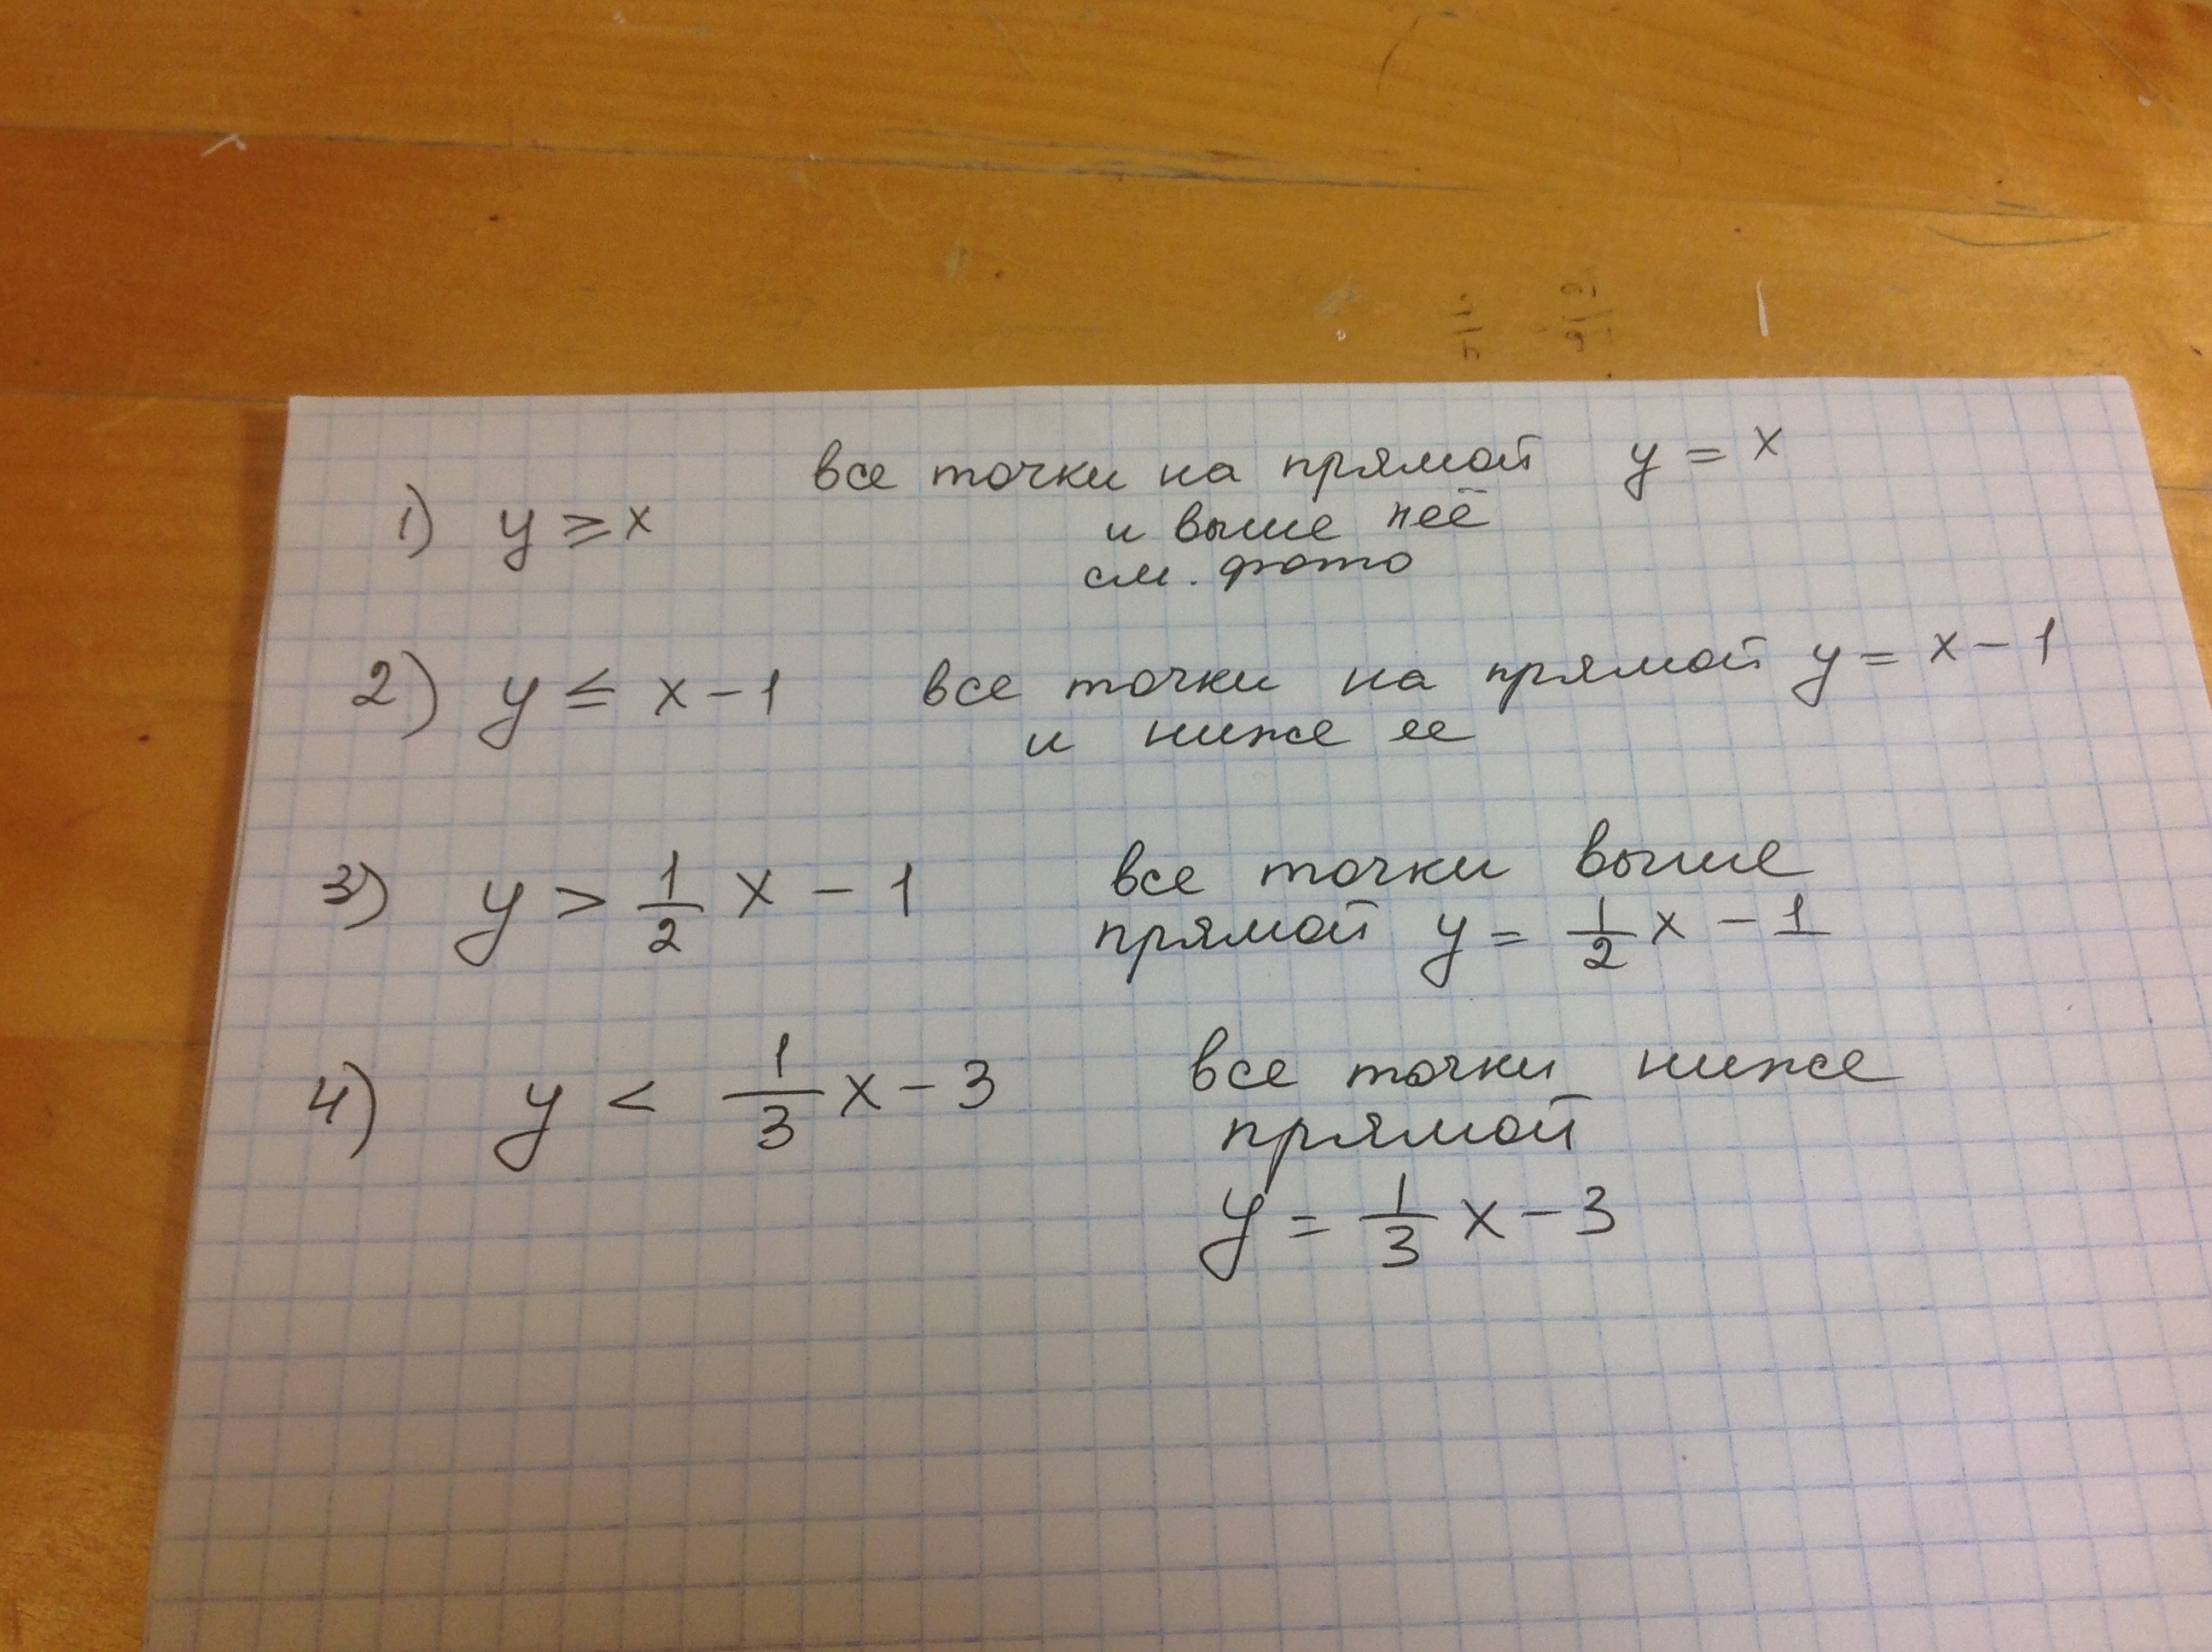 1) y ⩾ x все точки на прямой y = x
и выше неё
см. фото
2) y ≤ x - 1 все точки на прямой y = x - 1
и ниже ее
3) y > 1/2 x - 1 все точки выше
прямой y = 1/2 x - 1
4) y < 1/3 x - 3 все точки ниже
прямой
y = 1/3 x - 3